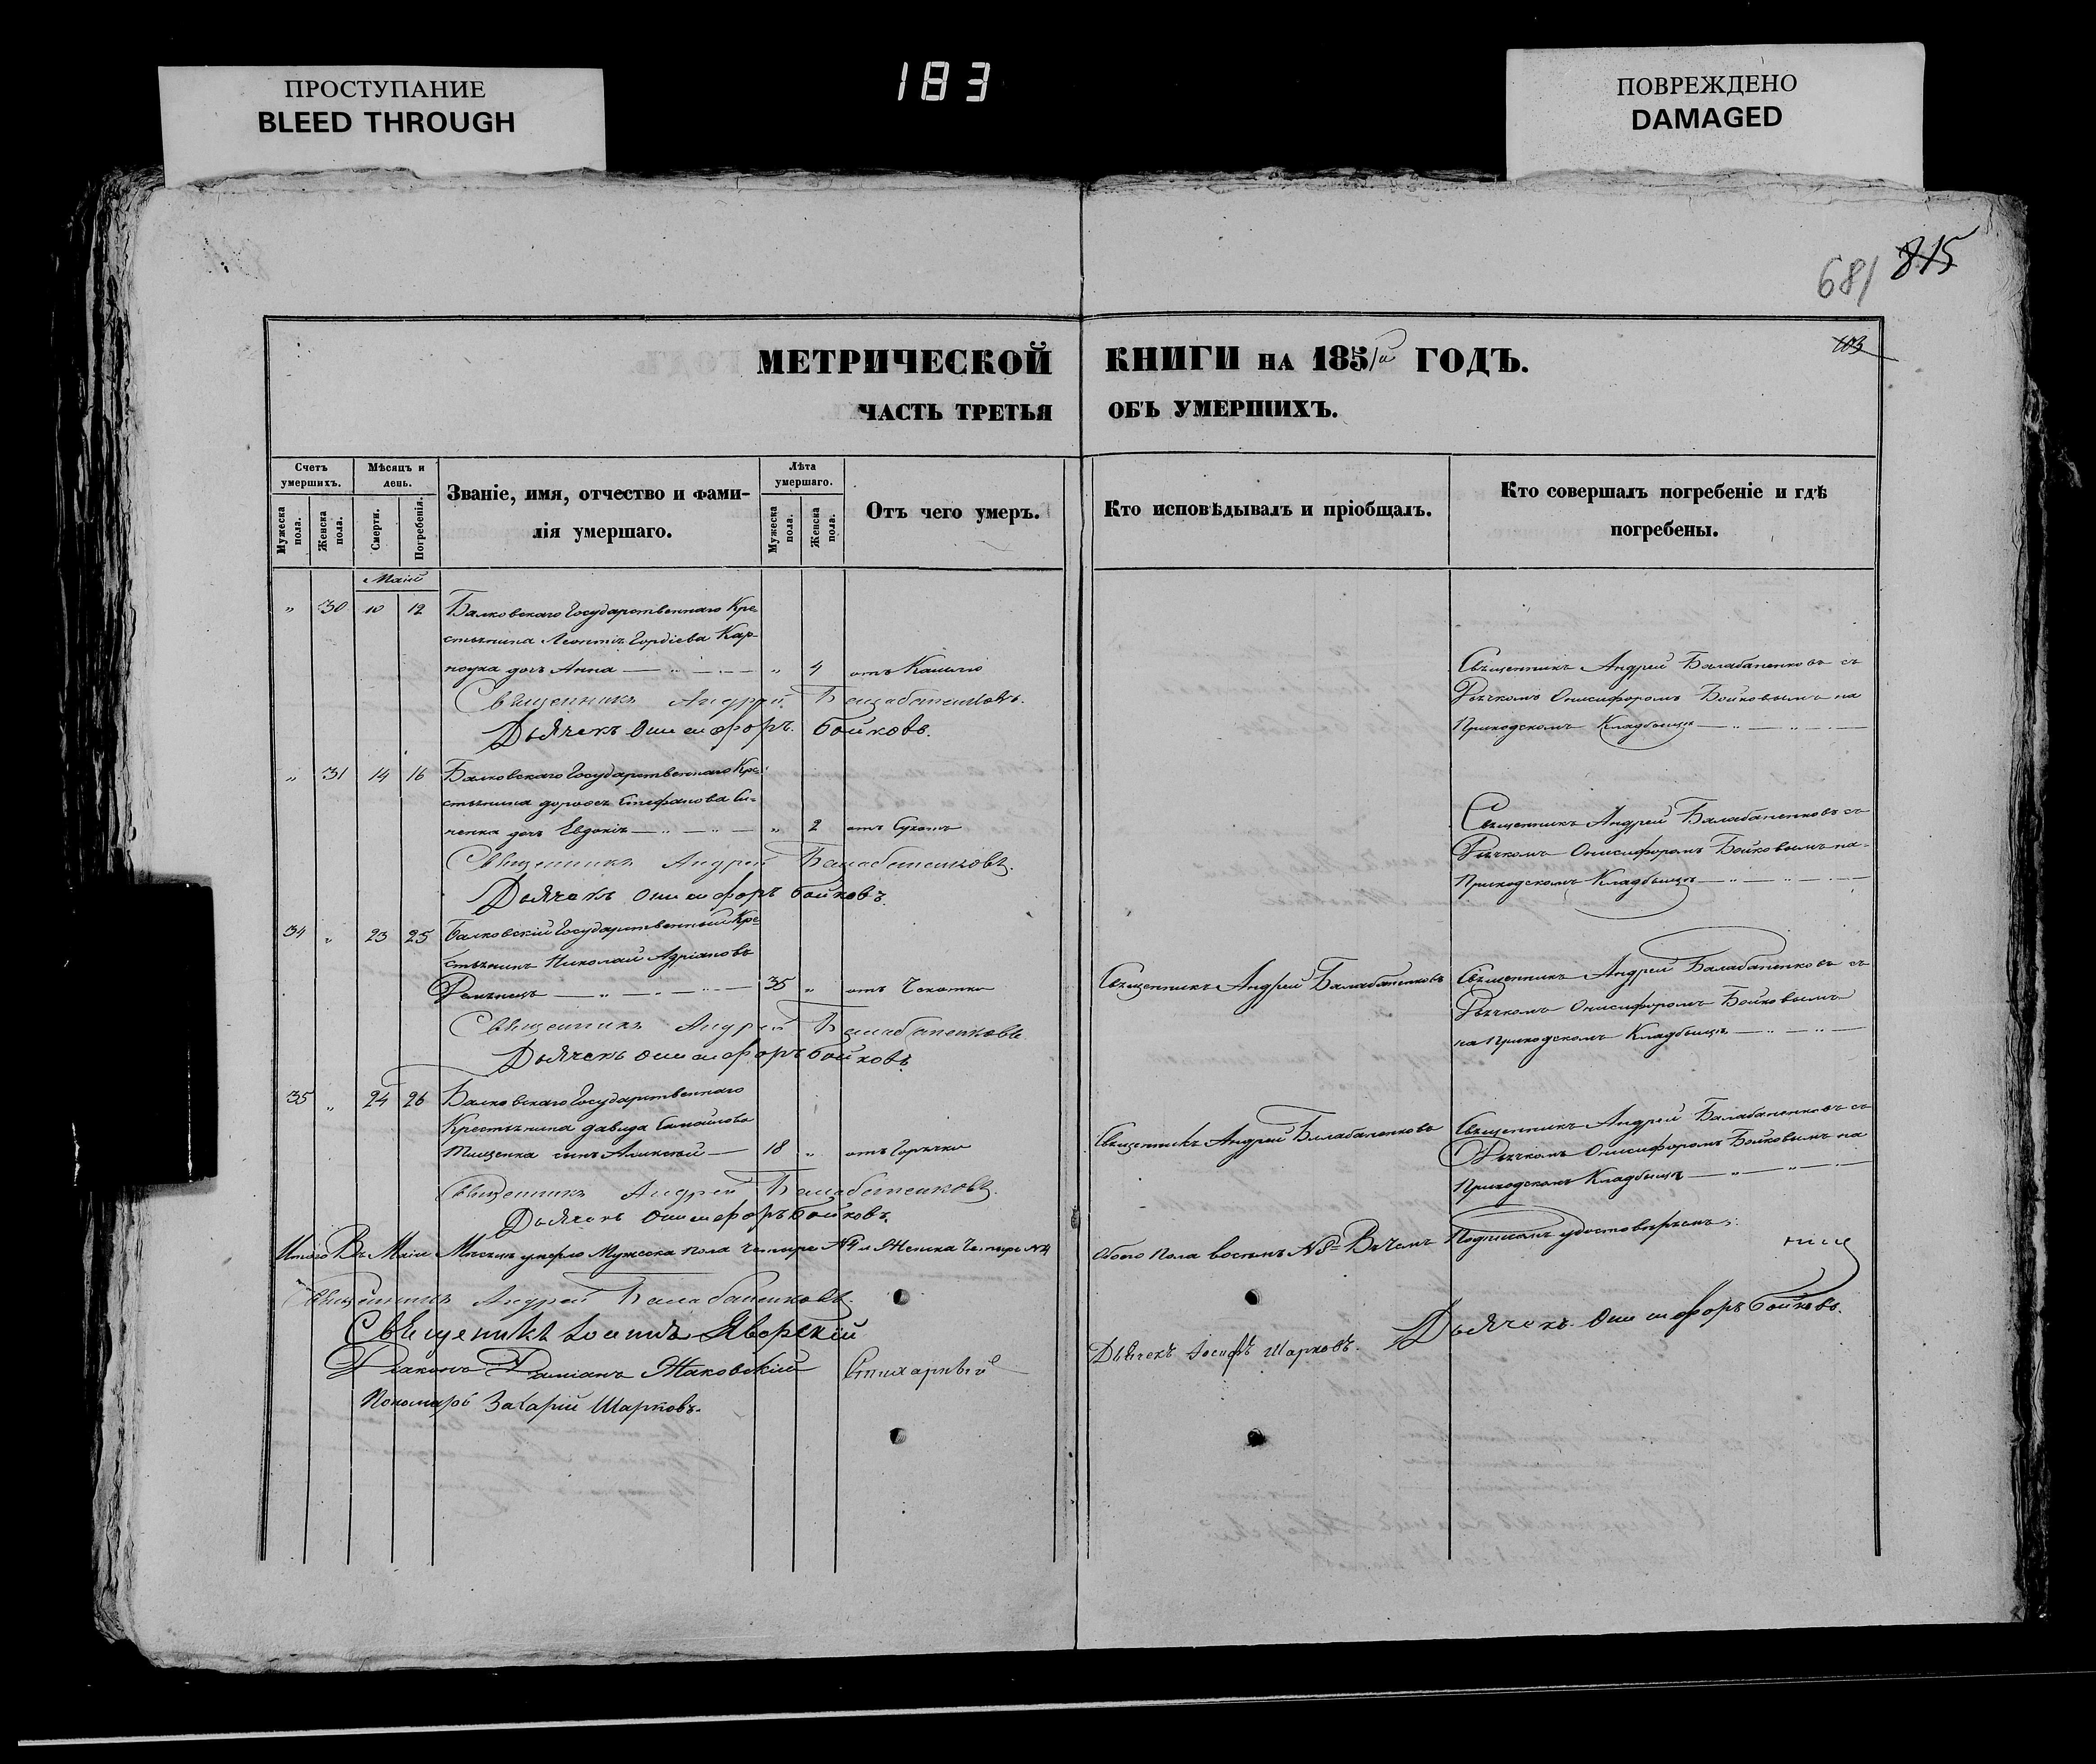 ПРОСТУПАНИЕ
BLEED THROUGH
183
ПОВРЕЖДЕНО
DAMAGED
681 815
103
МЕТРИЧЕСКОЙ КНИГИ НА 1851й ГОДЪ.
ЧАСТЬ ТРЕТЬЯ ОБЪ УМЕРШИХЪ.
Счетъ умершихъ.
Мужеска пола.
Женска пола.
Мѣсяцъ и день.
Смерти.
Погребенія.
Званіе, имя, отчество и фами-
лія умершаго.
Лѣта умершаго.
Мужеска пола.
Женска пола.
Отъ чего умеръ.
Кто исповѣдывалъ и пріобщалъ.
Кто совершалъ погребеніе и гдѣ
погребены.
Маій
" 30 10 12 Балковскаго Государственнаго Кре-
стьянина Леонтія Гордіева Кар-
дочь Анна " 4 отъ Кашлю
Священникъ Андрей Балабаненковъ съ
Дьячкомъ Онисифоромъ Бойковымъ на
Приходскомъ Кладбищѣ
Священникъ Андрей Балабаненковъ.
Дьячекъ Онисифоръ Бойковъ.
" 31 14 16 Балковскаго Государственнаго Кре-
стьянина Стефанова
дочь Евдокія " 2 отъ Сухотъ
Священникъ Андрей Балабаненковъ съ
Дьячкомъ Онисифоромъ Бойковымъ на
Приходскомъ Кладбищѣ
Священникъ Андрей Балабаненковъ.
Дьячекъ Онисифоръ Бойковъ.
34 " 23 25 Балковскій Государственный Кре-
стьянинъ Николай Адріановъ
35 " отъ Чахотки
Священникъ Андрей Балабаненковъ
Священникъ Андрей Балабаненковъ съ
Дьячкомъ Онисифоромъ Бойковымъ
на Приходскомъ Кладбищѣ
Священникъ Андрей Балабаненковъ
Дьячекъ Онисифоръ Бойковъ.
35 " 24 26 Балковскаго Государственнаго
Крестьянина Давида Самойлова
Тищенка сынъ Алексѣй 18 " отъ Горячки
Священникъ Андрей Балабаненковъ
Священникъ Андрей Балабаненковъ съ
Дьячкомъ Онисифоромъ Бойковымъ на
Приходскомъ Кладбищѣ
Священникъ Андрей Балабаненковъ.
Дьячекъ Онисифоръ Бойковъ.
Итого Въ Маіи Мѣсяцѣ умерло Мужеска пола четыре №4 и Женска Четыре №4 Обоего Пола восемь №8 Въ чемъ Подписомъ удостовѣряемъ:
Священникъ Андрей Балабаненковъ.
Священикъ Іоаннъ Яворскій
Діаконъ Даміанъ Жаковскій Стихарный
Дьячекъ Іосифъ Шарковъ. Дьячекъ Онисифоръ Бойковъ.
Пономарь Захарій Шарковъ.